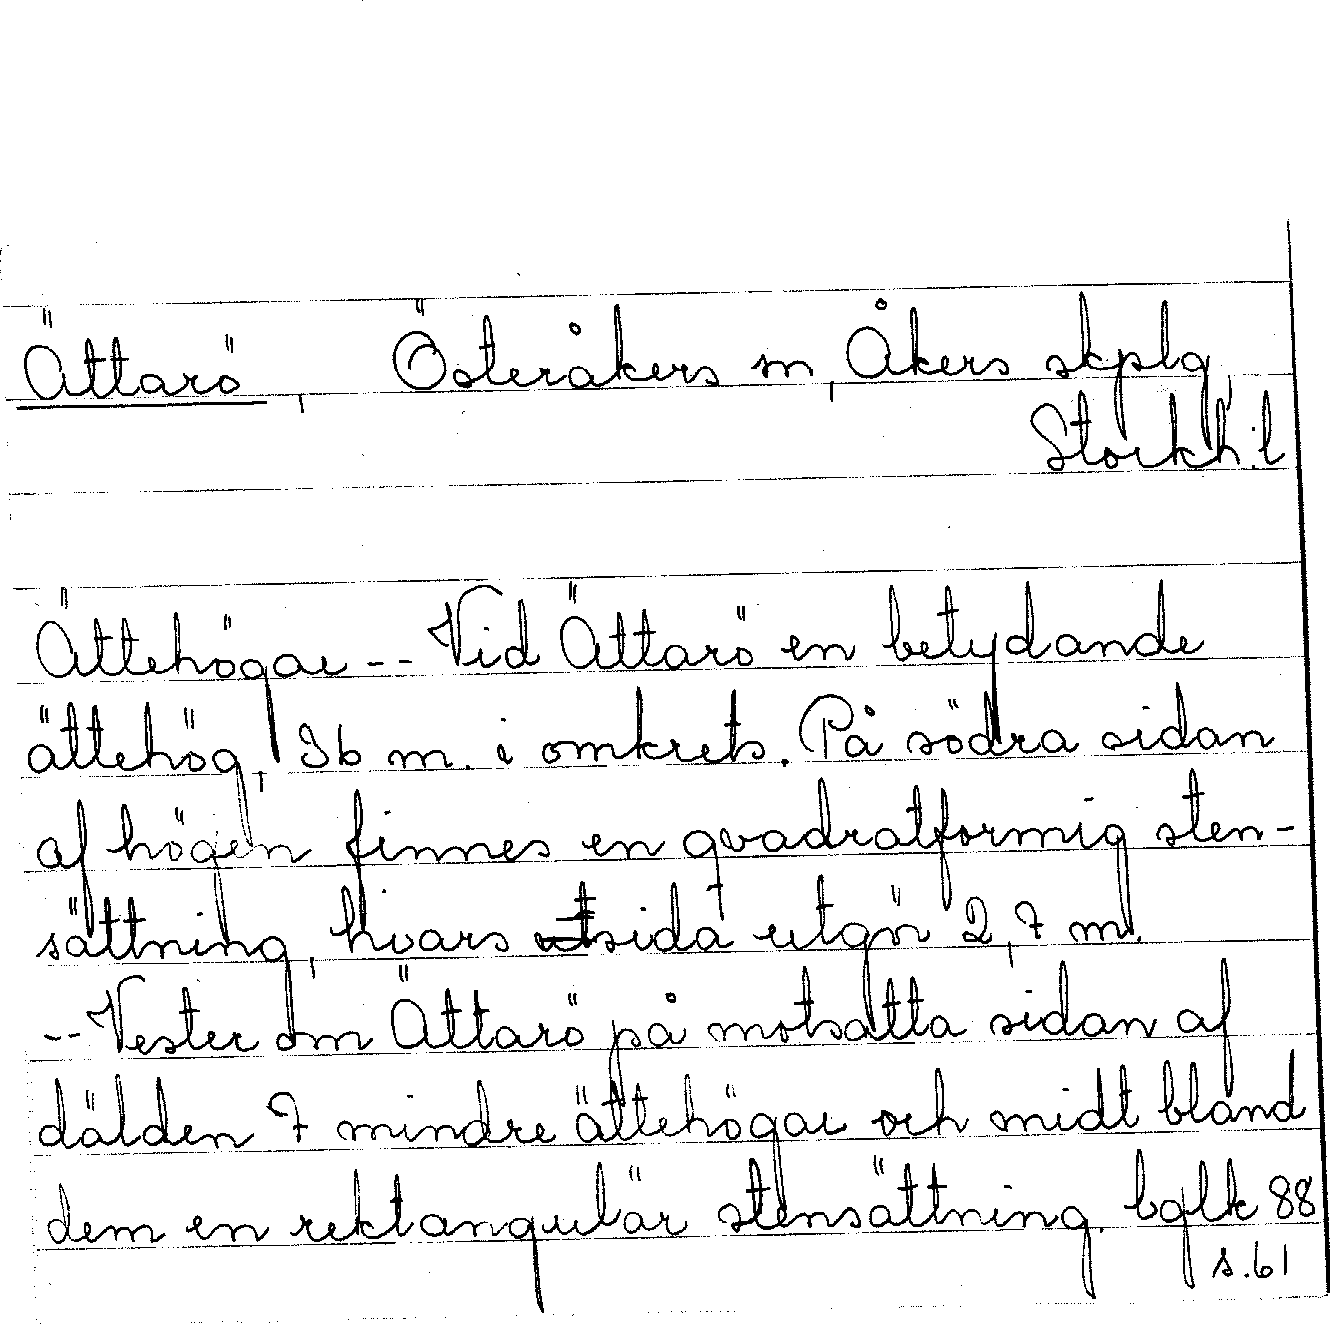 Ättarö, Österåkers sn, Åkers skplg,
Storkh. l
Ättehögar -- Vid Ättarö en betydande
ättehög, 36 m. i omkrets. På södra sidan
af högen finnes en qvadratformig sten-
sättning, hvars sida utgör 2,7 m.
-- Vester om Ättarö på motsatta sidan af
dälden 7 mindre ättehögar och midt bland
dem en rektangulär stensättning. bglk 88
s. 61